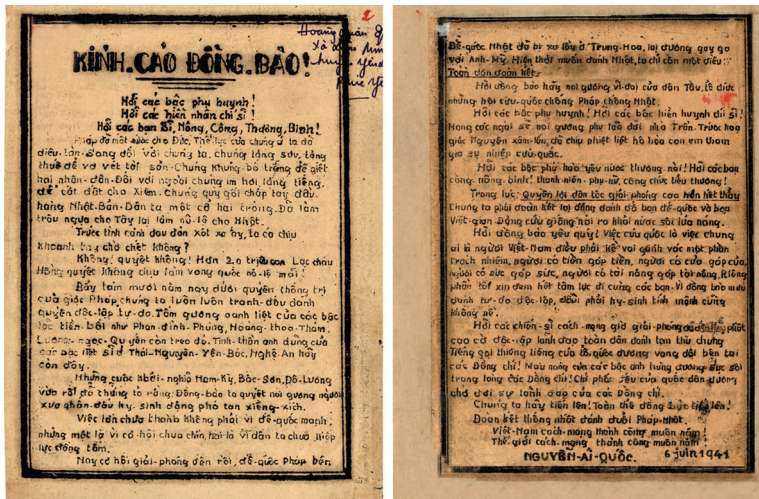 2
Hoàng
Xã
KÍNH-CÁO ĐỒNG-BÀO!
Hỡi các bậc phụ huynh!
Hỡi các hiền nhân chí sĩ!
Hỡi các bạn Sĩ, Nông, Công, Thương, Binh!
Pháp đã mất nước cho Đức, Thế lực của chúng ở ta đã
điêu-tàn. Song đối với chúng ta, chúng tăng sưu, tăng
thuế để vơ vét tài sản. Chúng khủng bố trắng để giết
hại nhân dân. Đối với ngoài chúng im hơi lặng tiếng,
để cắt đất cho Xiêm. Chúng quỳ gối chắp tay đầu
hàng Nhật-Bản. Dân ta một cổ hai tròng. Đã làm
trâu ngựa cho Tây lại làm nô-lệ cho Nhật.
Trước tình cảnh đau đớn xót xa ấy, ta có chịu
khoanh tay chờ chết không?
Không, quyết không! Hơn 20 triệu con Lạc cháu
Hồng quyết không chịu làm vong quốc nô-lệ mãi!
Bảy tám mươi năm nay dưới quyền thống trị
của giặc Pháp, chúng ta luôn luôn tranh-đấu dành
quyền độc-lập tự-do. Tấm gương oanh liệt của các bậc
lão tiền-bối như Phan-đình-Phùng, Hoàng-hoa-Thám,
Lương-ngọc-Quyến còn treo đó. Tinh-thần anh dũng của
các bậc liệt sĩ ở Thái-Nguyên-Yên-Bác, Nghệ-An hãy
còn đây.
Những cuộc khởi-nghĩa Nam-Kỳ, Bắc-Sơn, Đô-Lương
vừa rồi đã chứng tỏ rằng: Đồng-bào ta quyết noi gương người
xưa phấn-đấu hy-sinh đặng phá tan xiềng-xích.
Việc lớn chưa thành không phải vì đế-quốc mạnh,
nhưng một là vì cơ-hội chưa chín, hai là vì dân ta chưa hiệp
lực đồng tâm.
Nay cơ hội giải-phóng đến rồi, đế-quốc Pháp bên
Đế-quốc Nhật đã bị sa lầy ở Trung-Hoa, lại đương gay go
với Anh-Mỹ. Hiện thời muốn đánh Nhật, ta chỉ cần một điều:
Toàn dân đoàn kết.
Hỡi đồng bào hãy noi gương vĩ-đại của dân Tàu, tổ chức
những hội cứu-quốc chống Pháp chống Nhật.
Hỡi các bậc phụ huynh! Hỡi các hiền huynh chí sĩ!
Mong các ngài sẽ noi gương phụ lão đời nhà Trần. Trước họa
giặc Nguyên xâm-lấn, đã chịu nhiệt liệt hô hào con em tham
gia sự nghiệp cứu-quốc.
Hỡi các bậc phú hào yêu nước thương nòi! Hỡi các bạn
công, nông, binh! thanh niên, phụ-nữ, công chức tiểu thương!
Trong lúc Quyền lợi dân tộc giải phóng cao hơn hết thảy
Chúng ta phải đoàn kết lại đặng đánh đổ bọn đế-quốc và bọn
Việt-gian. Đặng cứu giống nòi ra khỏi nước sôi lửa nóng.
Hỡi đồng bào yêu quý! Việc cứu quốc là việc chung
ai là người Việt-Nam đều phải kề vai gánh vác một phần
trách nhiệm, người có tiền góp tiền, người có của góp của,
người có sức góp sức, người có tài năng góp tài năng. Riêng
phần tôi xin đem hết tâm lực đi cùng các bạn. Vì đồng bào mưu
dành tự-do độc-lập, dầu phải hy-sinh tính mệnh cũng
không nề.
Hỡi các chiến-sĩ cách-mạng giờ giải-phóng đã đến hãy phất
cao cờ độc-lập lãnh đạo toàn dân đánh tan thù chung
Tiếng gọi thiêng liêng của tổ-quốc đương vang dội bên tai
các Đồng chí! Máu nóng của các bậc anh hùng đương sục sôi
trong lòng các Đồng chí! Chí phấn đấu của quốc dân đương
chờ đợi sự lãnh đạo của các Đồng chí.
Chúng ta hãy tiến lên! Toàn thể đồng bào tiến lên!
Đoàn kết thống nhất đánh đuổi Pháp-Nhật.
Việt-Nam cách-mạng thành công muôn năm!
Thế giới cách-mạng thành công muôn năm
NGUYỄN-ÁI-QUỐC. 6 juin 1941